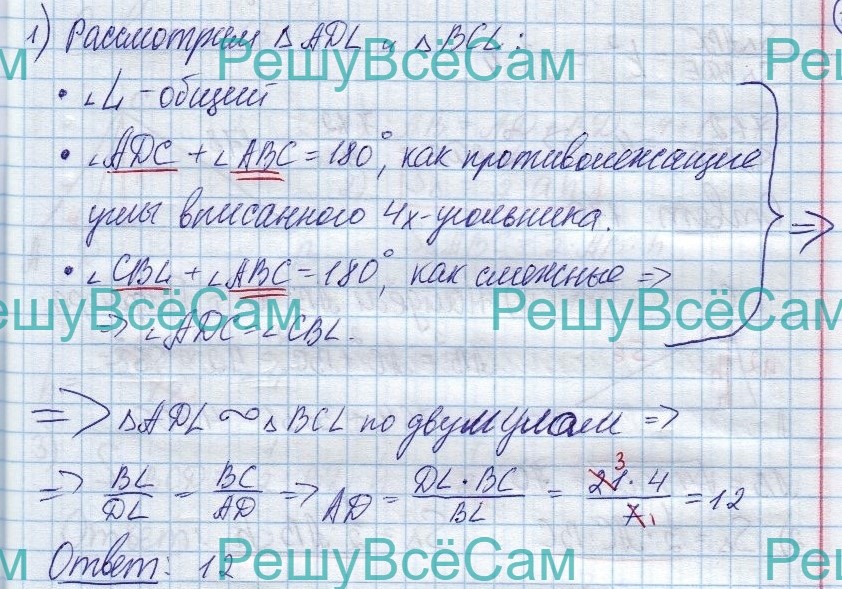 1) Рассмотрим △ADL и △BCL:
• ∠L - общий
• ∠ADC + ∠ABC = 180°, как противолежащие
углы вписанного 4х-угольника.
• ∠CBL + ∠ABC = 180°, как смежные =>
=> ∠ADC = ∠CBL.
=>
=> △ADL ~ △BCL по двум углам =>
=> BL/DL = BC/AD => AD = DL · BC/BL = 21 3 · 4/7 1 = 12
Ответ: 12
РешуВсёСам
РешуВсёСам
РешуВсёСам
РешуВсёСам